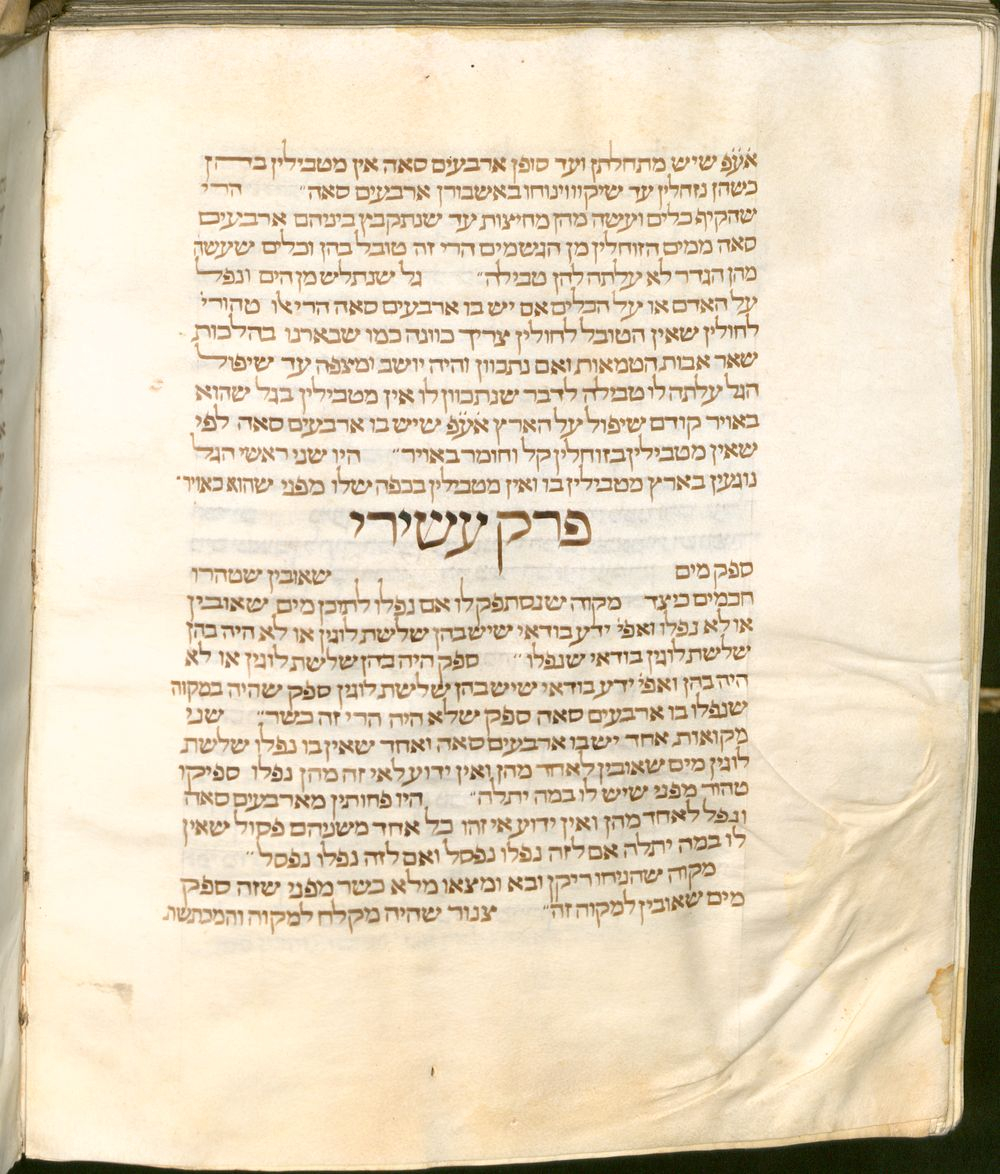 אעפ שיש מתחלתן ועד סופן ארבעים סאה אין מטבילין בהן
כשהן נזחלין עד שיקוו וינוחו באשבורן ארבעים סאה״ הרי
שהקיף כלים ועשה מהן מחיצות עד שנתקבץ ביניהם ארבעים
סאה ממים הזוחלין מן הגשמים הרי זה טובל בהן וכלים שעשה
מהן הגדר לא עלתה להן טבילה״ גל שנתלש מן הים ונפל
על האדם או על הכלים אם יש בו ארבעים סאה הרי אלו טהורי׳
לחולין שאין הטובל לחולין צריך כוונה כמו שבארנו בהלכות
שאר אבות הטמאות ואם נתכוון והיה יושב ומצפה עד שיפול
הגל עלתה לו טבילה לדבר שנתכוון לו אין מטבילין בגל שהוא
באויר קודם שיפול על הארץ אעפ שיש בו ארבעים סאה לפי
שאין מטבילין בזוחלין קל וחומר באויר״ היו שני ראשי הגל
נוגעין בארץ מטבילין בו ואין מטבילין בכפה שלו מפני שהוא כאויר״
פרק עשירי
ספק מים שאובין שטהרו
חכמים כיצד מקוה שנסתפק לו אם נפלו לתוכן מים שאובין
או לא נפלו ואפי׳ ידע בודאי שיש בהן שלשת לוגין או לא היה בהן
שלשת לוגין בודאי שנפלו״ ספק היה בהן שלשת לוגין או לא
היה בהן ואפי׳ ידע בודאי שיש בהן שלשת לוגין ספק שהיה במקוה
שנפלו בו ארבעים סאה ספק שלא היה הרי זה כשר״ שני
מקואות אחד יש בו ארבעים סאה ואחד שאין בו נפלו שלשת
לוגין מים שאובין לאחד מהן ואין ידוע לאי זה מהן נפלו ספיקו
טהור מפני שיש לו במה יתלה״ היו פחותין מארבעים סאה
ונפל לאחד מהן ואין ידוע אי זהו כל אחד משניהם פסול שאין
לו במה יתלה אם לזה נפלו נפסל ואם לזה נפלו נפסל״
מקוה שהניחו ריקן ובא ומצאו מלא כשר מפני שזה ספק
מים שאובין למקוה זה״ צנור שהיה מקלח למקוה והמכתשת